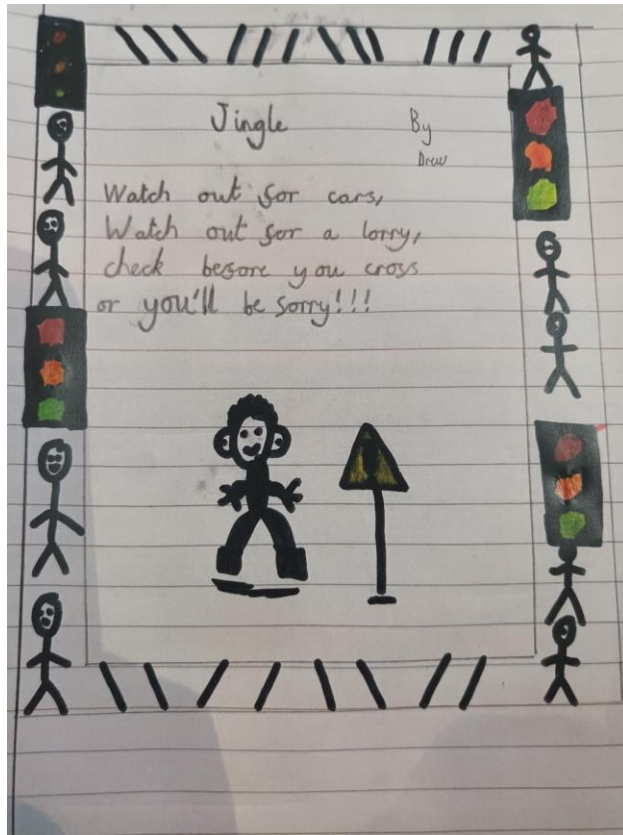 Jingle
By
Drew
Watch out for cars,
Watch out for a lorry,
check before you cross
or you'll be sorry!!!